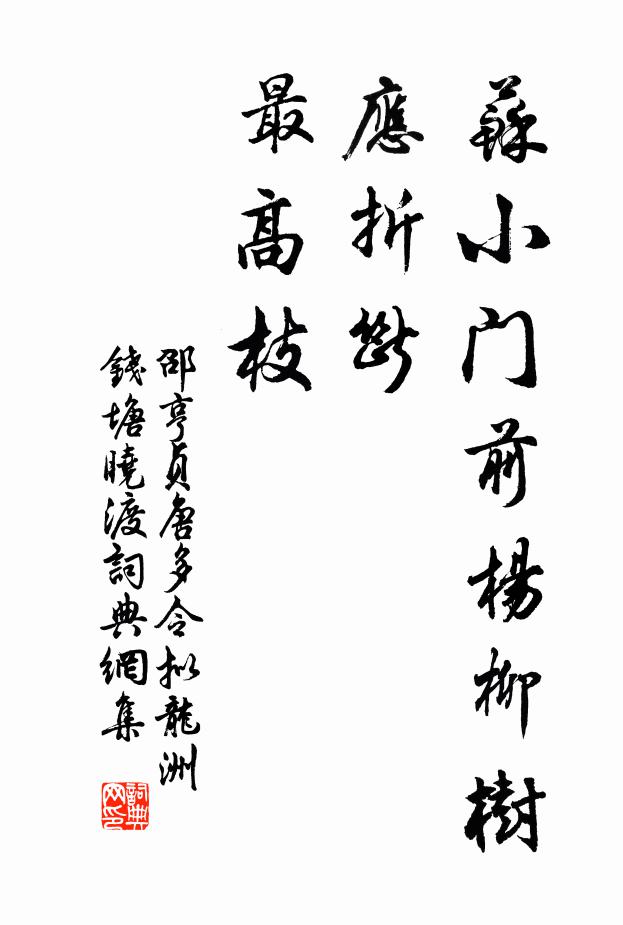 蘇小门前楊柳樹
應折斷
最高枝
邵亨貞唐多令拟龍洲
錢塘曉渡詞典網集
詞典
网印